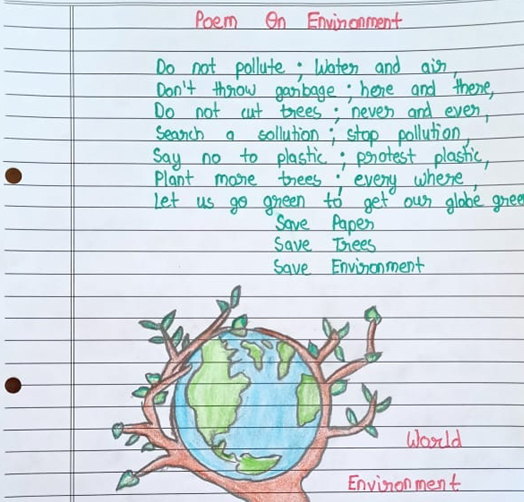 Poem On Environment
Do not pollute ; Water and air,
Don't throw garbage ; here and there,
Do not cut trees ; never and ever,
Search a sollution ; stop pollution,
Say no to plastic ; protest plastic,
Plant more trees ; every where,
Let us go green to get our globe gree
Save Paper
Save Trees
Save Environment
World
Environment